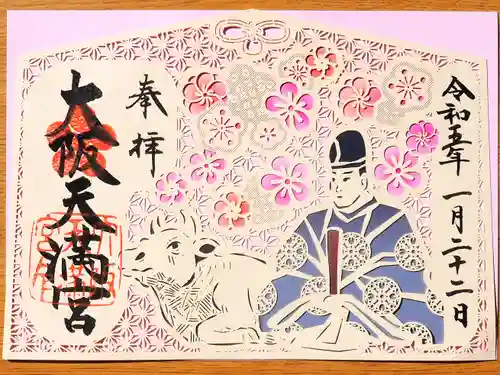 令和五年 一月二十二日
奉拝
大阪天満宮